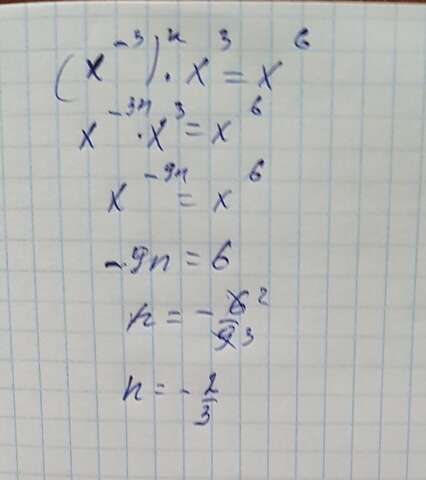 (x⁻³)ⁿ · x³ = x⁶
x⁻³ⁿ · x³ = x⁶
x⁻⁹ⁿ = x⁶
-9n = 6
n = - 6 2 / 9 3
n = - 2/3